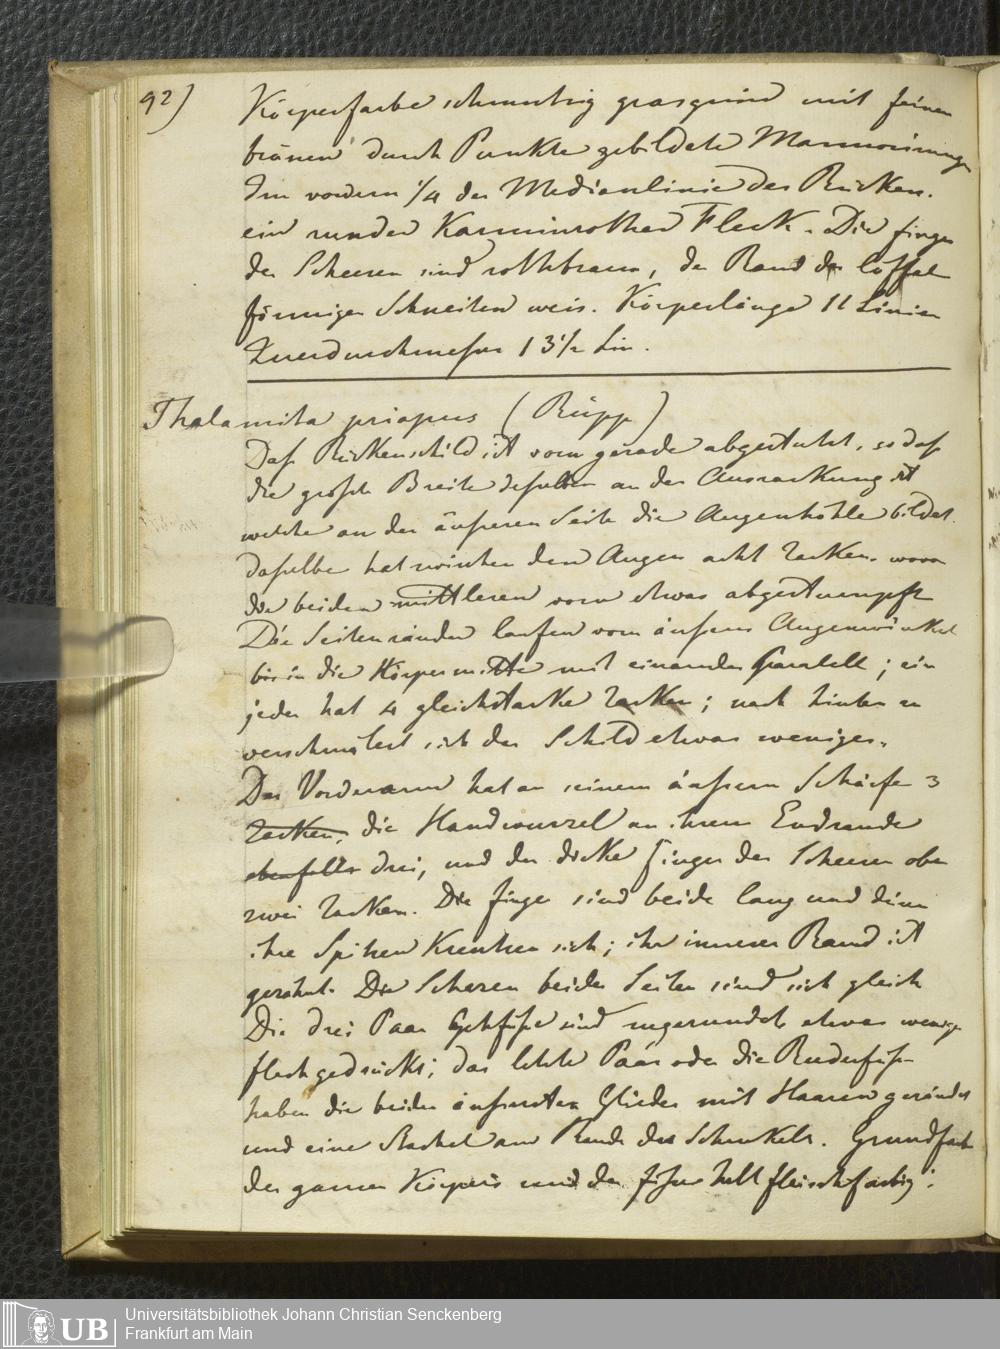 92)
Körperfarbe schmutzig grasgrün mit feinen
bräunen durch Punkte gebildete Marmorirungen
Im vordern 1/4 der Medianlinie des Rücken.
ein runder Karminrother Fleck. Die finger
der Scheeren sind rothbraun, der Rand der löffel
förmigen Schneiten weis. Körperlänge 11 Linien
Querdurchmesser 13 1/2 Lin.
Thalamita priapus (Rüpp)
Daß Rückenschild ist vorn gerade abgestutzt, so daß
die große Breite deßelben an der Auszackung ist
welche an der äußeren Seite die Augenhöhle bildet.
daßelbe hat zwischen den Augen acht Zacken. wovon
die beiden mittleren vorn etwas abgestumpft
Die Seitenränder laufen vom äußern Augenwinkel
bis in die Körpermitte mit einander Paralell; ein
jeder hat 4 gleichstarke Zacken; nach hinten zu
verschmälert sich das Schild etwas weniges.
Der Vorderarm hat an seinem äußern Schärfe 3
Zacken, die Handwurzel an ihrem Endrande
ebenfalls drei, und der dicke finger der Scheeren oben
zwei Zacken. Die finger sind beide lang und dünn
ihre Spitzen Kreutzen sich; ihr innerer Rand ist
gezähnt. Die Scheren beider Seiten sind sich gleich
Die drei Paar Gehfüße sind zugerundet etwas wenig
flach gedrückt; das letzte Paar oder die Ruderfüße
haben die beiden äußersten Glieder mit Haaren gerändet
und eine Stachel am Rande des Schenkels. Grundfarbe
des ganzen Körpers und der füße hell fleischfarbig;
Universitätsbibliothek Johann Christian Senckenberg
Frankfurt am Main
UB